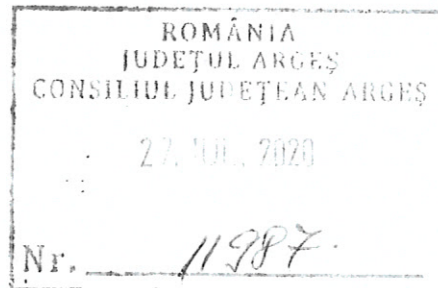 ROMÂNIA
JUDEȚUL ARGEȘ
CONSILIUL JUDEȚEAN ARGEȘ
2020
Nr. 11987